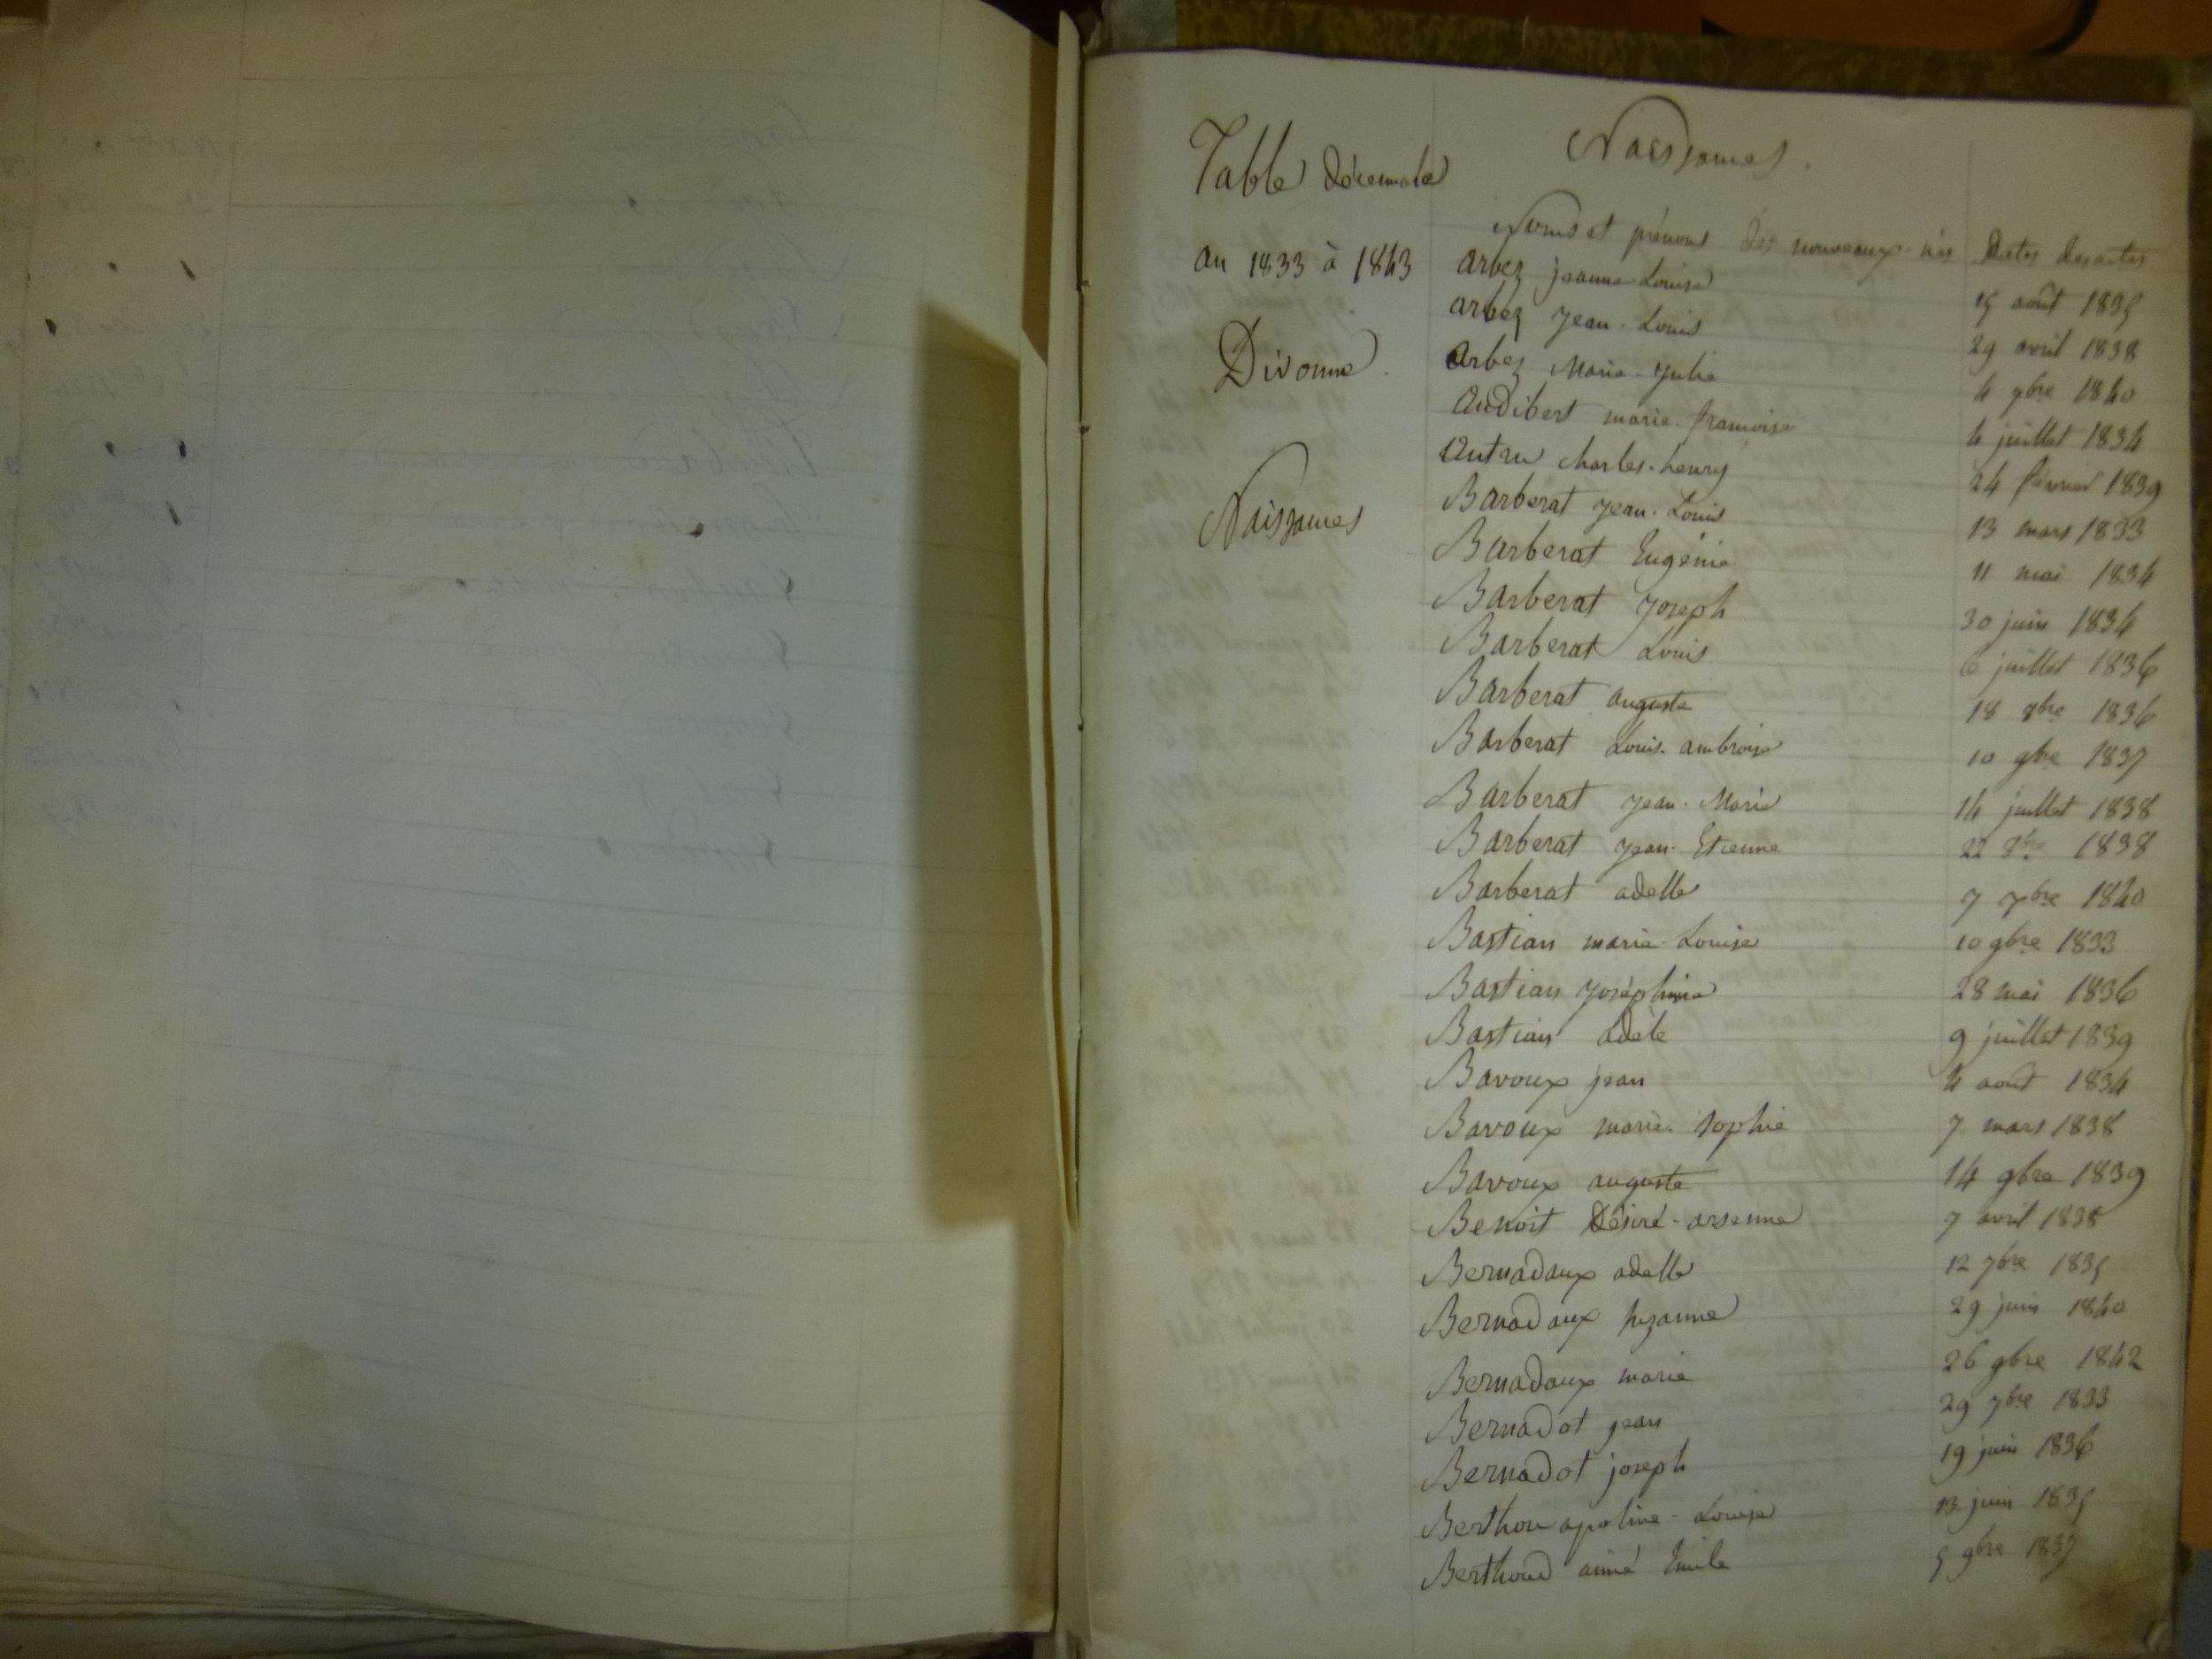 Table décennale
an 1833 à 1843
Divonne.
Naissances
Naissances.
Noms et prénoms des nouveaux-nés Dates des actes
Arbez jeanne-Louise 15 août 1835
Arbez jean-Louis 29 avril 1838
Arbez Marie-julie 4 7bre 1840
Audibert marie-françoise 4 juillet 1834
Charles-henry 24 février 1839
Barberat jean-Louis 13 mars 1833
Barberat Eugénie 11 mai 1834
Barberat joseph 30 juin 1834
Barberat Louis 6 juillet 1836
Barberat auguste 18 8bre 1836
Barberat Louis-ambroise 10 9bre 1837
Barberat jean-Marie 14 juillet 1838
Barberat jean-Etienne 22 8bre 1838
Barberat adelle 7 7bre 1840
Bastian marie-Louise 10 9bre 1833
Bastian joséphine 28 mai 1836
Bastian adèle 9 juillet 1839
Bavoux jean 4 août 1834
Bavoux marie-sophie 7 mars 1838
Bavoux auguste 14 9bre 1839
Benoit Désiré-arsenne 7 avril 1838
Bernadaux adelle 12 7bre 1835
Bernadaux suzanne 29 juin 1840
Bernadaux marie 26 9bre 1842
Bernadot jean 29 7bre 1833
Bernadot joseph 19 juin 1836
Berthou apoline-Louise 13 juin 1835
Berthoud aimé Emile 5 9bre 1837